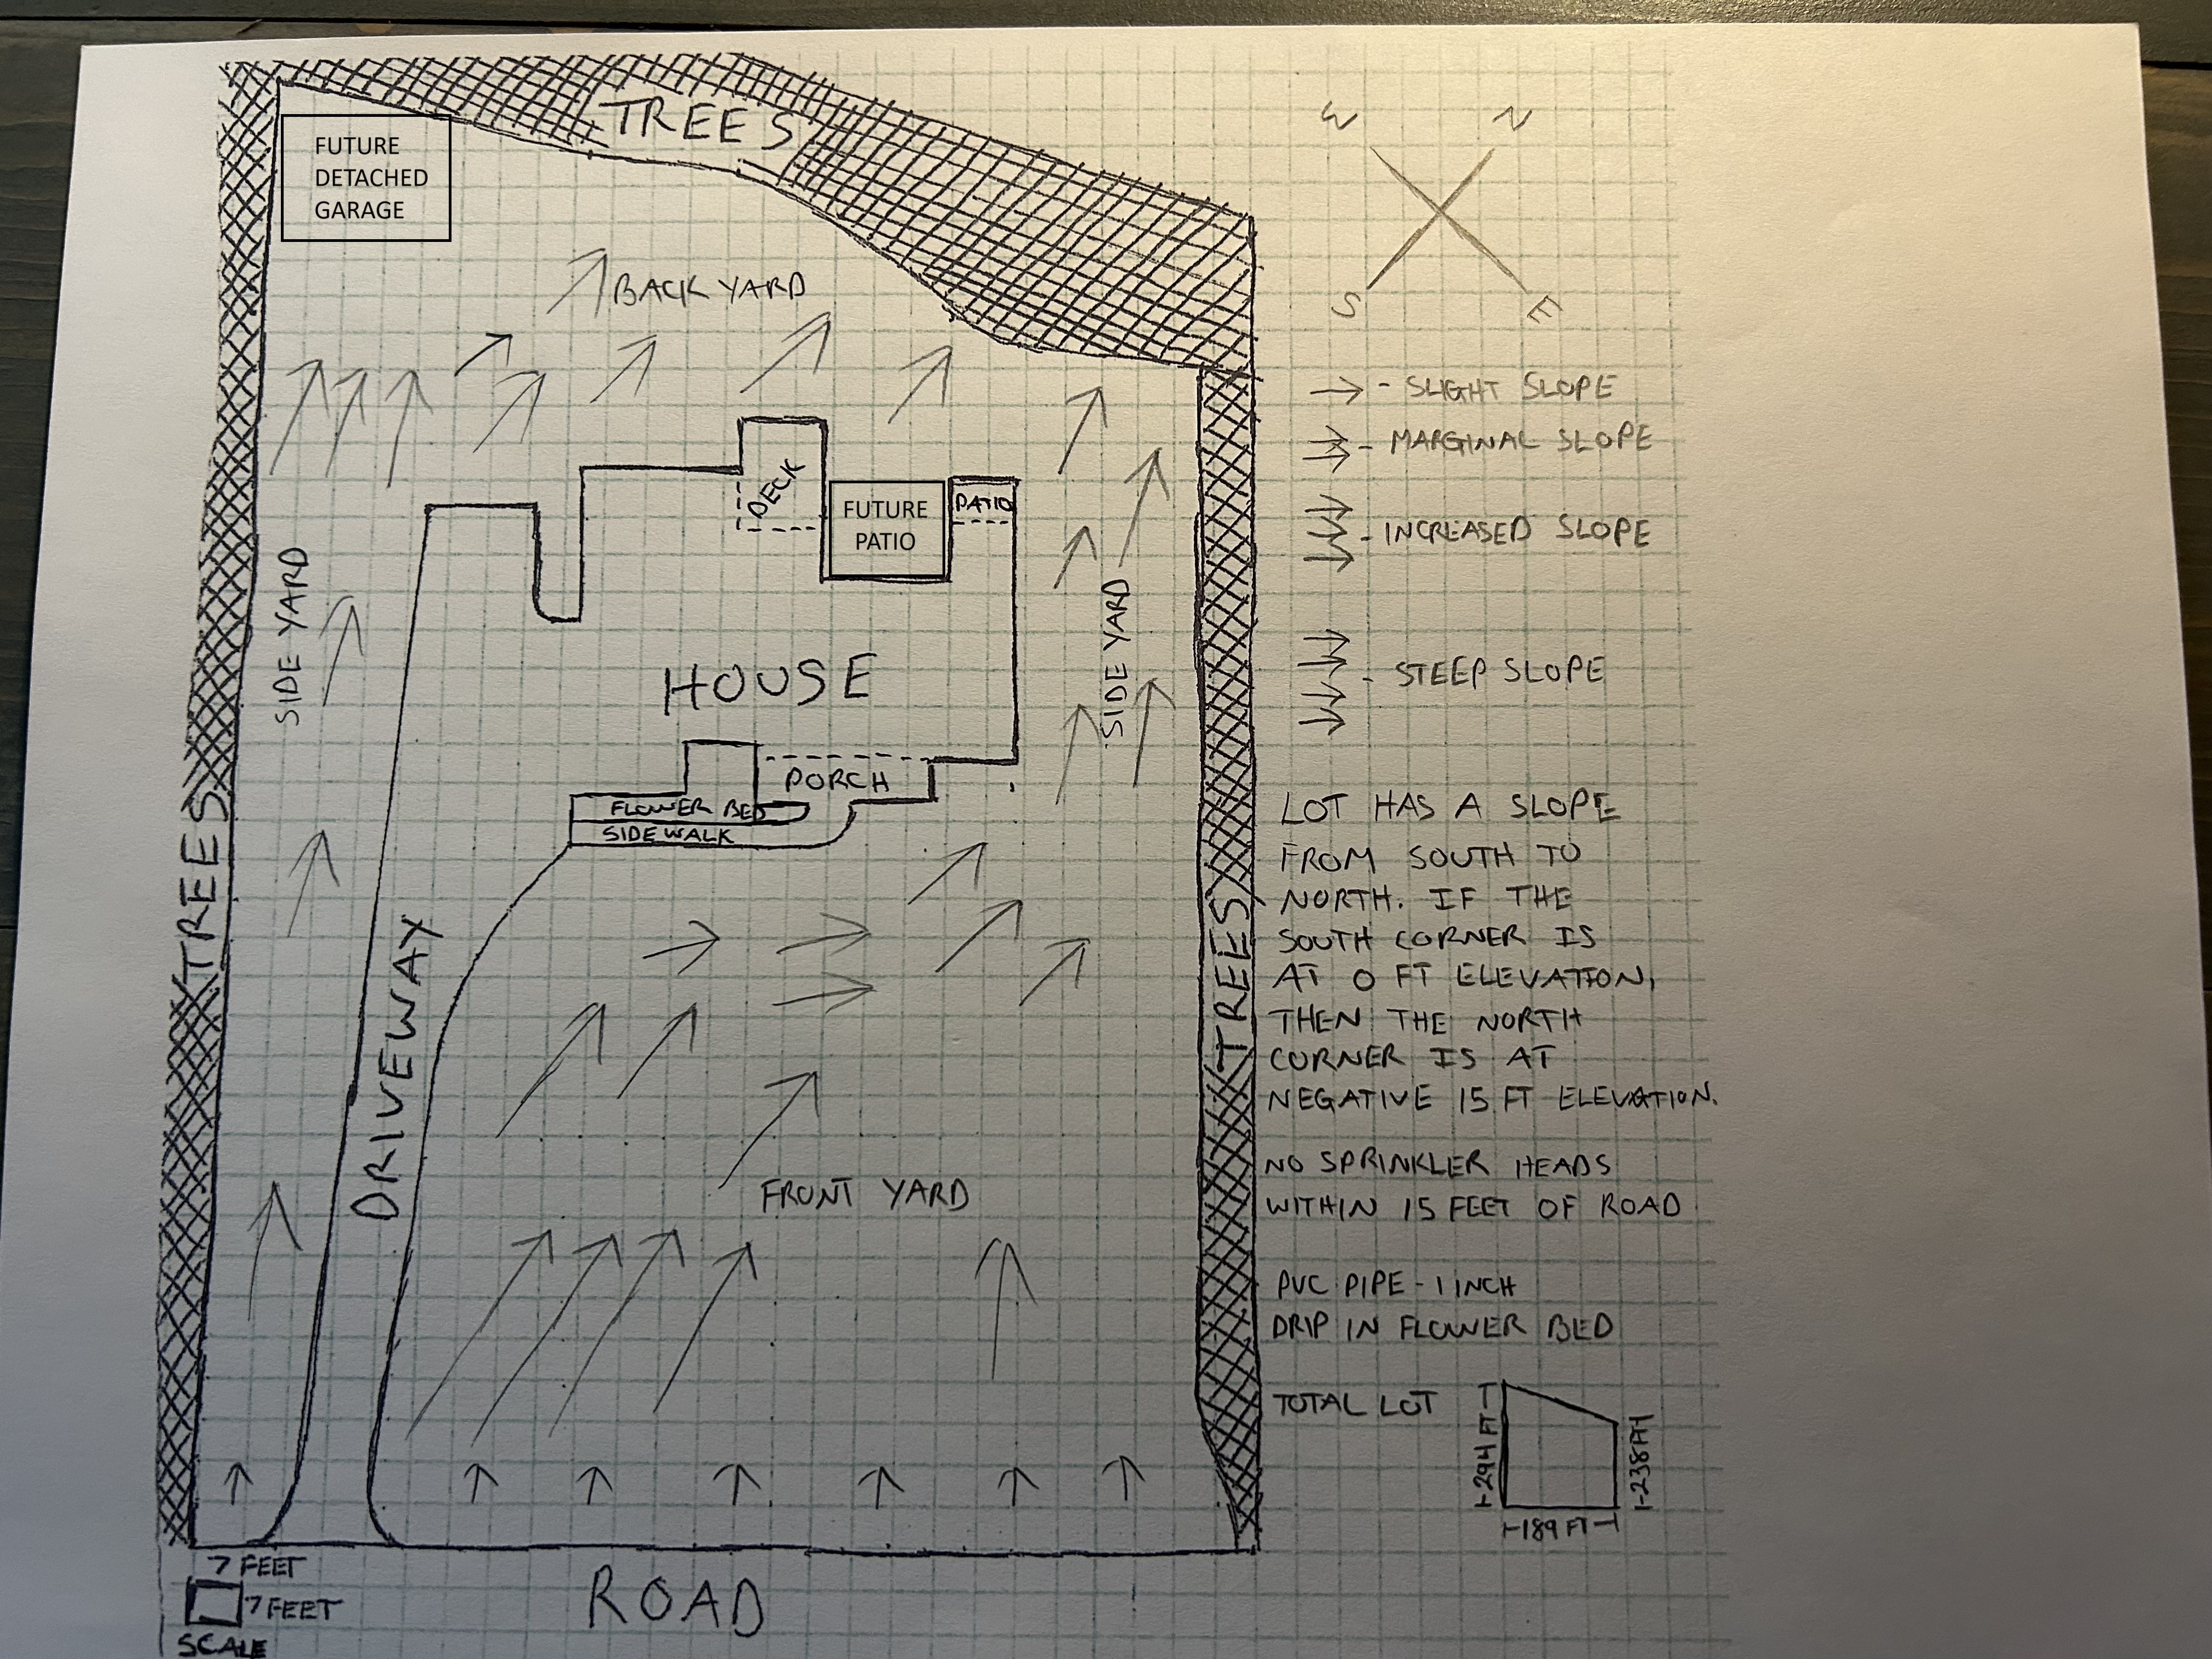 TREES
FUTURE
DETACHED
GARAGE
BACK YARD
W
N
S
E
→ - SLIGHT SLOPE
- MARGINAL SLOPE
- INCREASED SLOPE
- STEEP SLOPE
DECK
FUTURE
PATIO
PATIO
SIDE YARD
SIDE YARD
HOUSE
PORCH
FLOWER BED
SIDEWALK
TREES
TREES
DRIVEWAY
FRONT YARD
LOT HAS A SLOPE
FROM SOUTH TO
NORTH. IF THE
SOUTH CORNER IS
AT 0 FT ELEVATION,
THEN THE NORTH
CORNER IS AT
NEGATIVE 15 FT ELEVATION.
NO SPRINKLER HEADS
WITHIN 15 FEET OF ROAD
PVC PIPE - 1 INCH
DRIP IN FLOWER BED
TOTAL LOT
294 FT
238 FT
189 FT
7 FEET
7 FEET
SCALE
ROAD